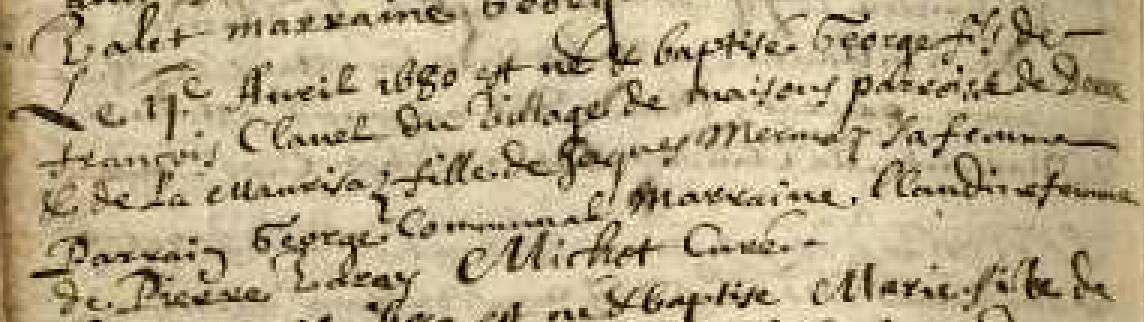 Valet marraine Georg
Le 11e Avril 1680 est né & baptisé George fils de
françois Clavel du village de maisons parroisse de
& de La Maurisa fille de Jaques Mermoz sa femme
Parrain George Communal Marraine Claudine femme
de Pierre Michot Curé
est né & baptisé Marie fille de